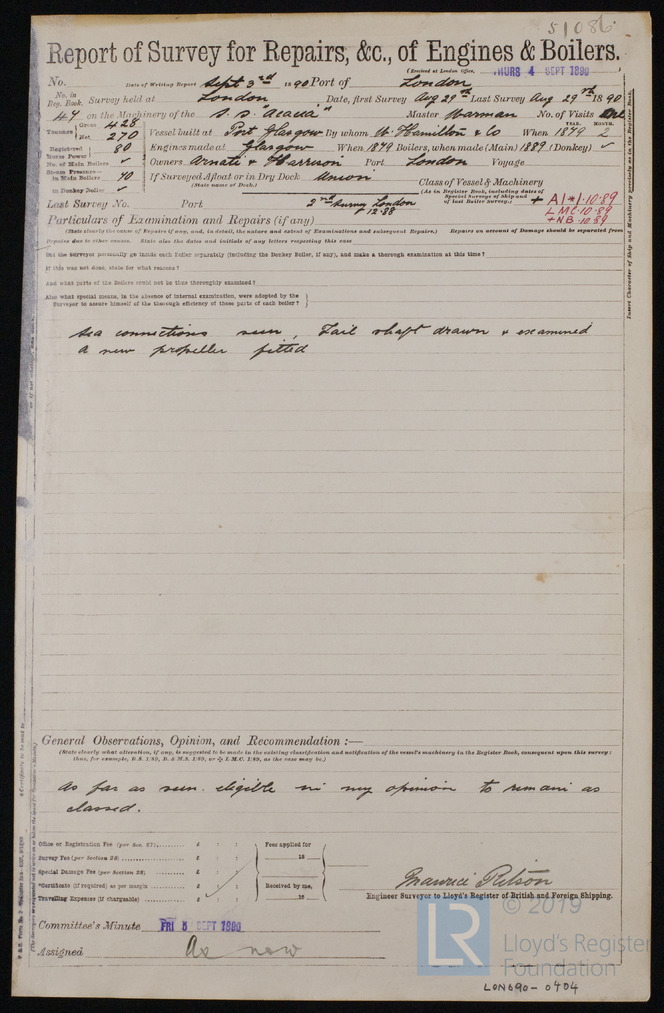 51086
Report of Survey for Repairs, &c., of Engines & Boilers.
(Received at London Office, THURS 4 SEPT 1890 )
No. Date of Writing Report Sept 3rd 1890 Port of London
No. in Reg. Book. Survey held at London Date, first Survey Aug 29th Last Survey Aug 29th 1890
47 on the Machinery of the S.S. "Acacia" Master Warman No. of Visits One
Tonnage Gross 428 Net 270 Vessel built at Port Glasgow By whom W. Hamilton & Co When YEAR. 1879 MONTH. 2
Registered Horse Power 80 Engines made at Glasgow When 1879 Boilers, when made (Main) 1889 (Donkey) ✓
No. of Main Boilers ✓ Owners & Harrison Port London Voyage
Steam Pressure in Main Boilers 70 If Surveyed Afloat or in Dry Dock Union Class of Vessel & Machinery
in Donkey Boiler ✓ (State name of Dock.) (As in Register Book, including dates of Special Surveys of Ship and of last Boiler Survey.) + A|*|.10.89
L.M.C. 10.89
+ N.B. 10.89
Last Survey No. Port 2nd London
12.88
Particulars of Examination and Repairs (if any)
(State clearly the cause of Repairs if any, and, in detail, the nature and extent of Examinations and subsequent Repairs.) Repairs on account of Damage should be separated from
Repairs due to other causes. State also the dates and initials of any letters respecting this case
Did the Surveyor personally go inside each Boiler separately (including the Donkey Boiler, if any), and make a thorough examination at this time?
If this was not done, state for what reasons?
And what parts of the Boilers could not be thus thoroughly examined?
Also what special means, in the absence of internal examination, were adopted by the
Surveyor to assure himself of the thorough efficiency of those parts of each boiler?
Insert Character of Ship and Machinery precisely as in the Register Book.
Sea connections seen, Tail shaft drawn & examined
a new propeller fitted
General Observations, Opinion, and Recommendation :—
(State clearly what alteration, if any, is suggested to be made in the existing classification and notification of the vessel's machinery in the Register Book, consequent upon this survey:
thus, for example, B.S. 1/89, B. & M.S. 1/89, or ✠ L.M.C. 1/89, as the case may be.)
As far as seen. eligible in my opinion to remain as
classed.
Office or Registration Fee (per Sec. 27) £ : : Fees applied for
Survey Fee (per Section 28) £ : : 18
Special Damage Fee (per Section 28) £ : :
*Certificate (if required) as per margin £ : : Received by me,
Travelling Expenses (if chargeable) £ : : 18
Maurice Ritson
Engineer Surveyor to Lloyd's Register of British and Foreign Shipping.
Committee's Minute FRI 5 SEPT 1890
Assigned As now
© 2019
LR Lloyd's Register
Foundation
LON690-0404